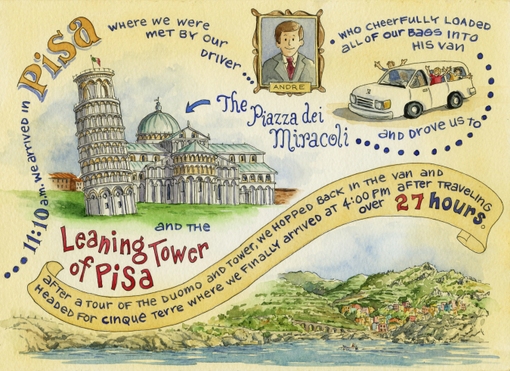 11:10 a.m. we arrived in
Pisa
where we were
met by our
driver...
ANDRE
who cheerfully loaded
all of our bags into
his van
and drove us to
The
Piazza dei
Miracoli
and the
Leaning Tower
of Pisa
after a tour of the Duomo and tower, we hopped back in the van and
headed for Cinque Terre where we finally arrived at 4:00 pm after traveling
over 27 hours.